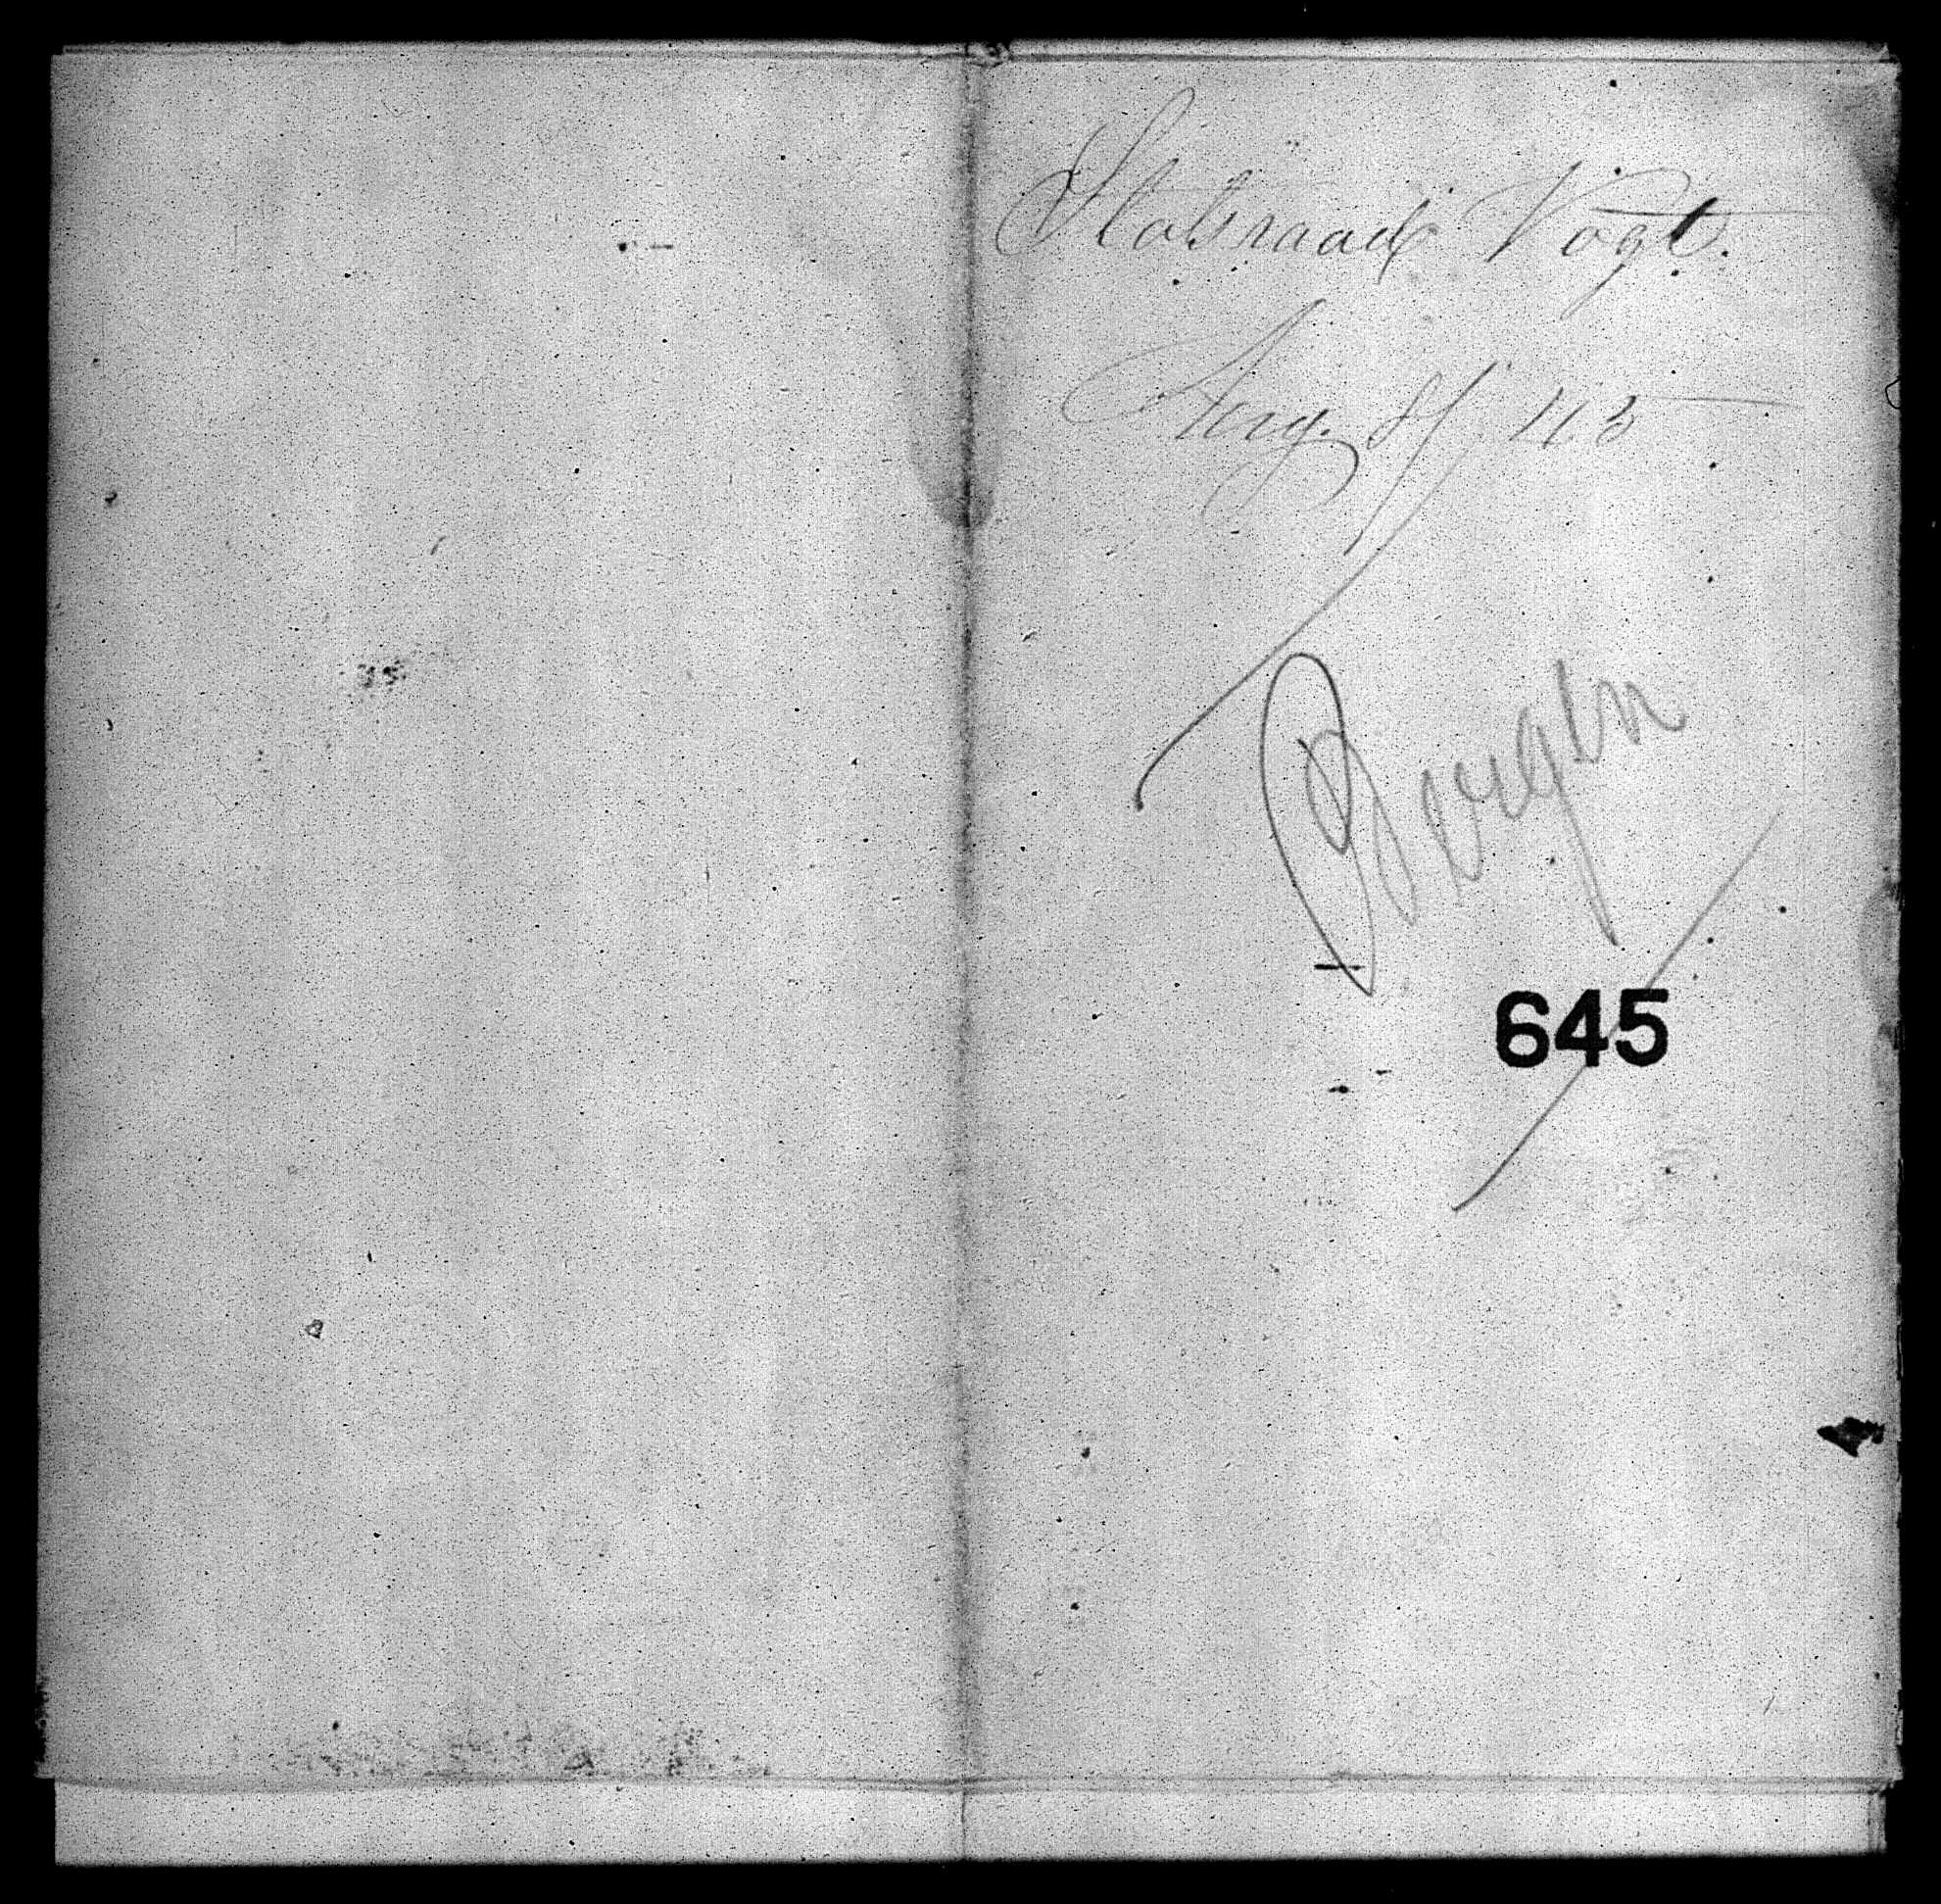 Statsraad Vogt.
Aug. 8/ 43
Bergen
645